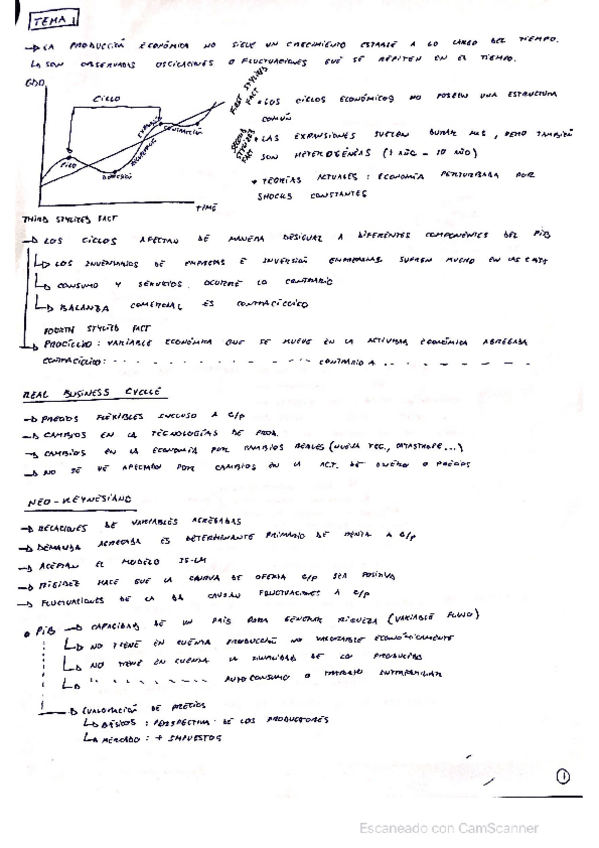 TEMA 1
→ LA PRODUCCIÓN ECONÓMICA NO SIGUE UN CRECIMIENTO ESTABLE A LO LARGO DEL TIEMPO.
SON OBSERVADAS OSCILACIONES O FLUCTUACIONES QUE SE REPITEN EN EL TIEMPO.
CICLO
PICO
EXPANSIÓN
CONTRACCIÓN
TIME
FIRST STYLIZED FACT
• LOS CICLOS ECONÓMICOS NO POSEEN UNA ESTRUCTURA
COMÚN
SECOND STYLIZED FACT
• LAS EXPANSIONES SUELEN DURAR MÁS, PERO TAMBIÉN
SON HETEROGÉNEAS (1 AÑO - 10 AÑO)
• TEORÍAS ACTUALES: ECONOMÍA PERTURBADA POR
SHOCKS CONSTANTES
THIRD STYLIZED FACT
→ LOS CICLOS AFECTAN DE MANERA DESIGUAL A DIFERENTES COMPONENTES DEL PIB
↳ LOS INVENTARIOS DE EMPRESAS E INVERSIÓN EMPRESARIAL SUFREN MUCHO EN LAS
↳ CONSUMO Y SERVICIOS OCURRE LO CONTRARIO
↳ BALANZA COMERCIAL ES CONTRACÍCLICO
FOURTH STYLIZED FACT
→ PROCÍCLICO: VARIABLE ECONÓMICA QUE SE MUEVE EN LA ACTIVIDAD ECONÓMICA AGREGADA
CONTRACÍCLICO: - - - - - - - - - - CONTRARIO A - - - - - - -
REAL BUSINESS CYCLE
→ PRECIOS FLEXIBLES INCLUSO A C/P
→ CAMBIOS EN LA TECNOLOGÍAS DE PROD.
→ CAMBIOS EN LA ECONOMÍA POR CAMBIOS REALES (NUEVA TEC., CATASTROFE...)
→ NO SE VE AFECTADO POR CAMBIOS EN LA ACT. DE DINERO O PRECIOS
NEO-KEYNESIANO
→ RELACIONES DE VARIABLES AGREGADAS
→ DEMANDA AGREGADA ES DETERMINANTE PRIMARIO DE RENTA A C/P
→ ACEPTAN EL MODELO IS-LM
→ RIGIDEZ HACE QUE LA CURVA DE OFERTA C/P SEA POSITIVA
→ FLUCTUACIONES DE LA DA CAUSAN FLUCTUACIONES A C/P
• PIB → CAPACIDAD DE UN PAÍS PARA GENERAR RIQUEZA (VARIABLE FLUJO)
↳ NO TIENE EN CUENTA PRODUCCIÓN NO VALORABLE ECONÓMICAMENTE
↳ NO TIENE EN CUENTA LA FINALIDAD DE LO PRODUCIDO
↳ " - - - - - - - AUTOCONSUMO O TRABAJO
→ EVALUACIÓN DE PRECIOS
↳ BÁSICOS: PERSPECTIVA DE LOS PRODUCTORES
↳ MERCADO: + IMPUESTOS
1
Escaneado con CamScanner